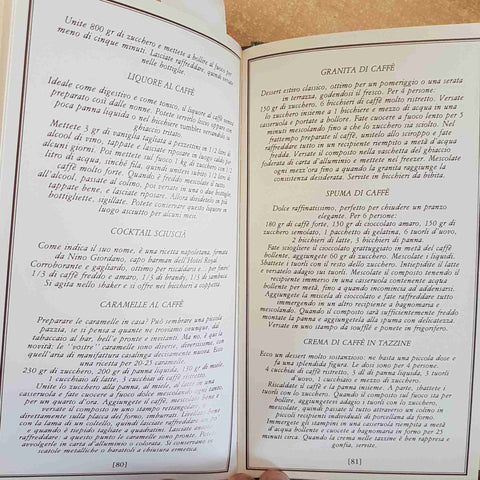 Unite 800 gr di zucchero e mettete a bollore al fuoco per
meno di cinque minuti. Lasciate raffreddare, quindi versate
nelle bottiglie.
LIQUORE AL CAFFÈ
Ideale come digestivo e come tonico, il liquore al caffè veniva
preparato così dalle nonne. Potete servirlo liscio oppure con
poca panna liquida o nel bicchiere tumbler versandolo su
ghiaccio tritato.
Mettete 3 gr di vaniglia tagliata a pezzettini in 1/2 litro di
alcool di vino, tappate e lasciate riposare per
alcuni giorni. In mettete sul fuoco 1 kg di zucchero con 1/2
litro di acqua, sinché fili, quindi unitevi subito 1/2 litro di
caffè molto forte. Quando è freddo mescolate il tutto
all'alcool, passate al colino, poi versate in una o più bottiglie,
tappate bene, e lasciate riposare. Allora dividetelo in più
bottigliette, sigillate. Potete conservare questo liquore in
luogo asciutto per alcuni mesi.
COCKTAIL SCIUSCIÀ
Come indica il suo nome, è una ricetta napoletana, firmata
da Nino Giordano, capo barman dell'Hotel Royal.
Corroborante e gagliardo, ottimo per riscaldarsi e... per berli
1/3 di caffè freddo e amaro, 1/3 di brandy, 1/3 di sambuca
Si agita nello shaker e si offre nei bicchieri a coppetta
CARAMELLE AL CAFFÈ
Preparare le caramelle in casa? Può sembrare una piccola
pazzia, se si pensa a quante ne troviamo ovunque, da
tabaccaio al bar, bell'e pronte e invitanti. Ma no, è una
novità; le "vostre" caramelle sono diverse, diventano, con
quell'aria di manifattura casalinga decisamente nuova. Ecco
una ricetta per 20-25 caramelle.
230 gr di zucchero, 200 gr di panna liquida, 130 gr di miele,
1 cucchiaio di latte, 3 cucchiai di caffè freddo.
Unite lo zucchero alla panna, al miele, al latte in una
casseruola e fate cuocere a fuoco dolce mescolando sempre
per un quarto d'ora. Aggiungete il caffè, mescolate bene e
versate il composto in uno stampo rettangolare,
direttamente sulla placca del forno, imburrati. Livellate
con la lama di un coltello, quindi lasciate raffreddare
e quando è tiepido tagliate a quadratini. Lasciate ancora
raffreddare: a questo punto le caramelle sono pronte. Potete
avvolgerle in carta d'alluminio o colorata. Si conservano in
scatole metalliche o barattoli a chiusura ermetica.
[80]
GRANITA DI CAFFÈ
Dessert estivo classico, ottimo per un pomeriggio o una serata
in terrazza, godendosi il fresco. Per 4 persone:
150 gr di zucchero, 6 bicchieri di caffè molto ristretto. Versate
lo zucchero insieme a 1 bicchiere e mezzo di acqua in una
casseruola e portate a bollore. Fate cuocere a fuoco lento per 5
minuti mescolando fino a che lo zucchero sia sciolto. Nel
frattempo preparate il caffè, unitelo allo sciroppo e fate
raffreddare tutto in un recipiente riempito a metà d'acqua
fredda. Versate il composto nella vaschetta per il ghiaccio
foderata di carta d'alluminio e mettete nel freezer. Mescolate
ogni mezz'ora fino a quando la granita raggiunge la
consistenza desiderata. Servite in bicchieri da bibita.
SPUMA DI CAFFÈ
Dolce raffinatissimo, perfetto per chiudere un pranzo
elegante. Per 6 persone:
180 gr di caffè forte, 150 gr di cioccolato amaro, 150 gr di
zucchero semolato, 1 pacchetto di gelatina, 6 tuorli di uovo,
2 bicchieri di latte, 3 bicchieri di panna
Fate sciogliere il cioccolato grattugiato in metà del caffè
bollente, aggiungete 60 gr di zucchero. Mescolate i liquidi.
Sbattete i tuorli con il resto dello zucchero. Intiepidite il latte
e versatelo adagio sui tuorli. Mescolate il composto tenendo il
recipiente immerso in una casseruola contenente acqua
bollente per metà, fino a quando incomincia ad addensarsi.
Aggiungete la miscela di cioccolato e fate raffreddare tutto
immergendolo in un altro recipiente a bagnomaria e
mescolando. Quando il composto sarà sufficientemente freddo
montate la panna e aggiungetela alla spuma con delicatezza.
Versate in uno stampo da soufflé e ponete in frigorifero.
CREMA DI CAFFÈ IN TAZZINE
Ecco un dessert molto sostanzioso: ne basta una piccola dose e
fa una splendida figura. Le dosi sono per 4 persone.
4 cucchiai di caffè ristretto, 1 dl di latte, 1 dl di panna, 3 tuorli
d'uovo, 1 cucchiaio e mezzo di zucchero.
Riscaldate il caffè e la panna insieme. A parte, sbattete i
tuorli con lo zucchero. Quando il composto sul fuoco sta per
bollire, aggiungetevi adagio i tuorli con lo zucchero,
mescolate, quindi passate il tutto attraverso un colino in
piccoli recipienti individuali di porcellana da forno.
Immergete gli stampini in una casseruola riempita a metà
d'acqua bollente e fate cuocere a bagnomaria in forno per 25
minuti circa. Quando la crema nelle tazzine è ben rappresa e
gonfia, servite.
[81]